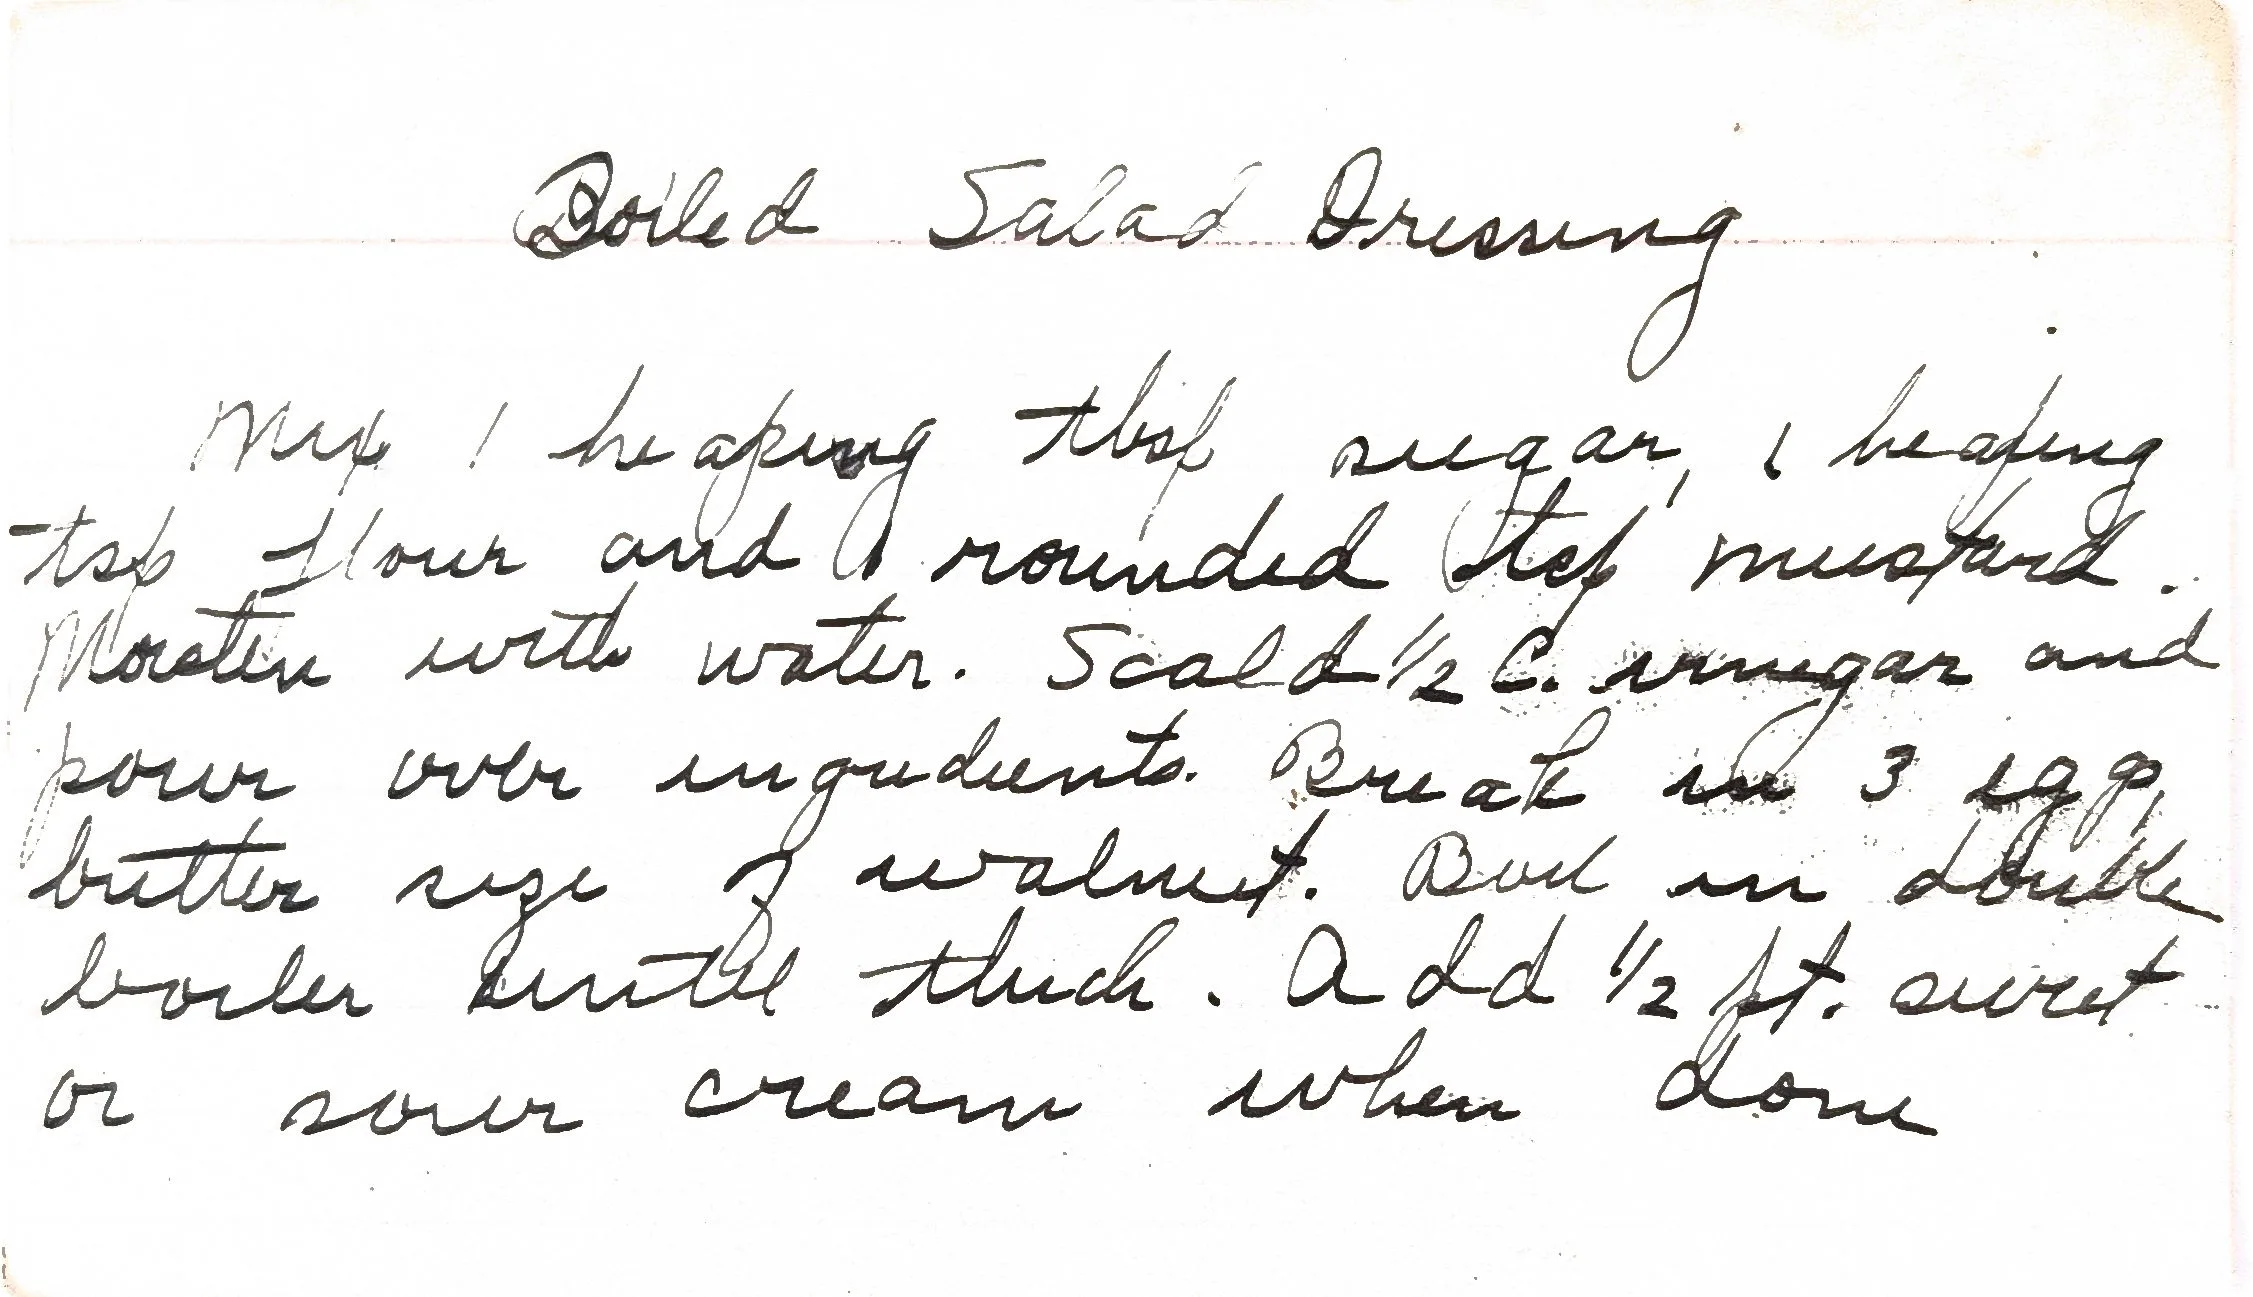 Boiled Salad Dressing
Mix 1 heaping tbsp sugar, 1 heaping
tsp flour and 1 rounded tsp mustard.
Moisten with water. Scald 1/2 C. vinegar and
pour over ingredients. Break in 3 eggs,
butter size of walnut. Boil in double
boiler until thick. Add 1/2 pt. sweet
or sour cream when done